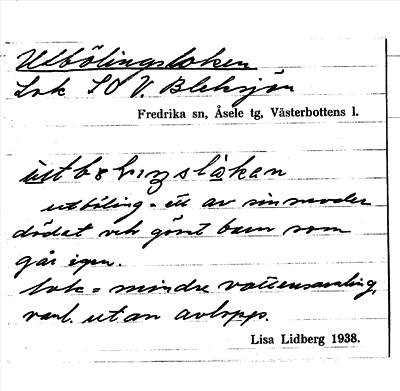 Utbölingsloken
Lok SO V. Bleksjön
Fredrika sn, Åsele tg, Västerbottens l.
utböling = ett av sin moder
dödat och gömt barn som
går igen.
lok = mindre vattensamling,
vanl. utan avlopp.
Lisa Lidberg 1938.